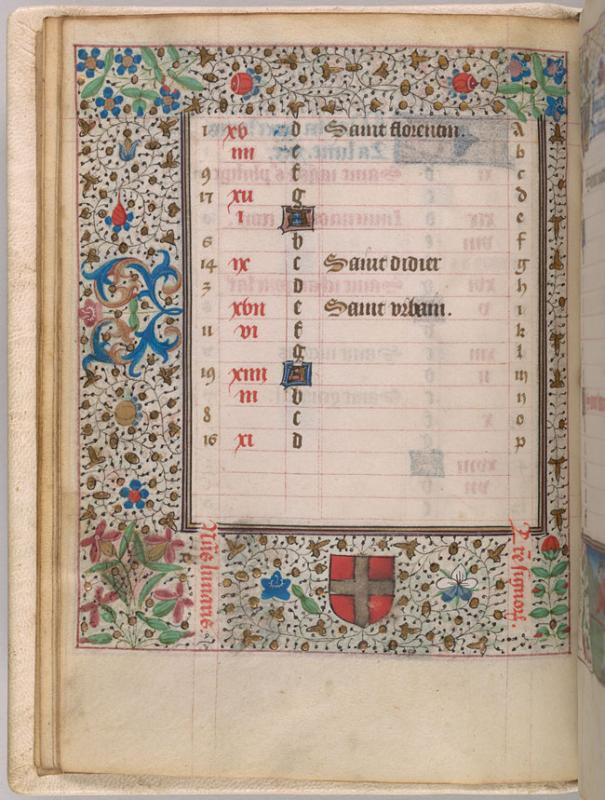 1 xv d Saint florentin. a
iiii e b
9 f c
17 xii g d
i A e
6 b f
14 ix c Saint didier g
3 d h
xvii e Saint vrbain. i
11 vi f k
g l
19 xiiii A m
iii b n
8 c o
16 xi d p